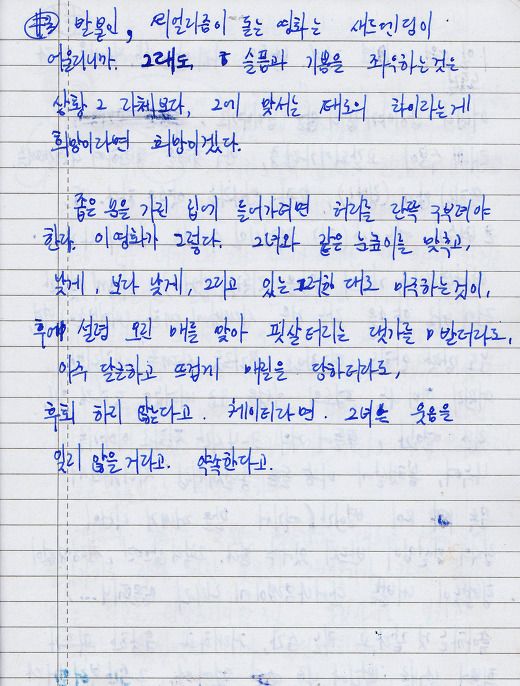 발붙인, 리얼리즘이 돋는 영화는 새드엔딩이
어울리니까. 그래도 슬픔과 기쁨을 좌우하는것은
상황 그 자체보다, 그에 맞서는 태도의 차이라는게
희망이라면 희망이겠다.
좁은 문을 가진 집에 들어가려면 허리를 간쪽 구부려야
한다. 이영화가 그렇다. 그녀와 같은 눈높이를 맞추고,
낮게, 보다 낮게, 그리고 있는 그대로 마주하는것이,
후에 설령 오린 매를 맞아 핏살터리는 댓가를 받더라도,
아주 달콤하고 뜨겁게 매릴을 당하더라도,
후회 하지 않는다고. 헤이터라면. 그녀는 웃음을
잃지 않을거라고. 약속한다고.